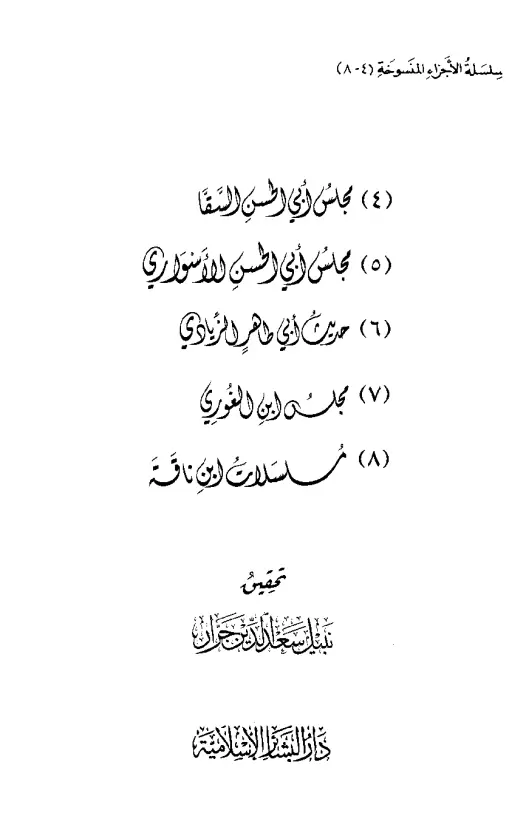 سِلسلَةُ الأَجْزَاءِ المَنسُوخَةِ (٤-٨)
(٤) مجلسُ أبي الحسنِ السَّقَّا
(٥) مجلسُ أبي الحسنِ الأَسْوَاري
(٦) حديثُ أبي طاهرٍ الزِّيَادي
(٧) مجلسُ ابنِ الغُوري
(٨) مُسلسَلاتُ ابنِ نَاقَةَ
تحقيقُ
نَبيل سَعد الدِّين جَرَّار
دَارُ البَشَائِر الإِسْلَامِيَّة